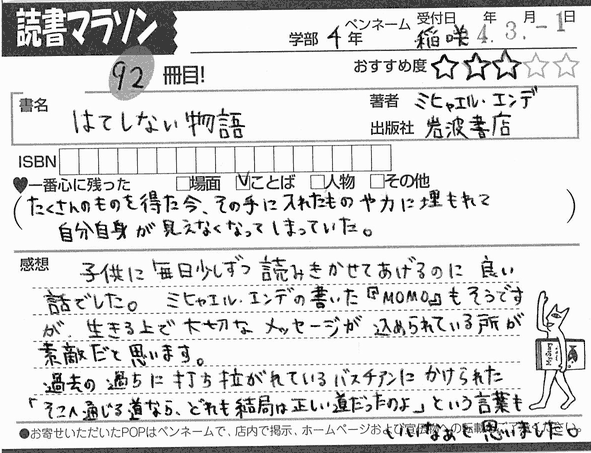 読書マラソン
学部 4年 ペンネーム 稲咲 受付日 4年3月-1日
92冊目!
おすすめ度 ☆☆☆☆☆
書名 はてしない物語
著者 ミヒャエル・エンデ
出版社 岩波書店
ISBN
♥一番心に残った □場面 ☑ことば □人物 □その他
(たくさんのものを得た今、その手に入れたものや力に埋もれて
自分自身が見えなくなってしまっていた。)
感想
子供に毎日少しずつ読みきかせてあげるのに良い
話でした。ミヒャエル・エンデの書いた『MOMO』もそうです
が、生きる上で大切なメッセージが込められている所が
素敵だと思います。
過去の過ちに打ち拉がれているバスチアンにかけられた
「そこへ通じる道なら、どれも結局は正しい道だったのよ」という言葉も
いいなぁと思いました。
●お寄せいただいたPOPはペンネームで、店内で掲示、ホームページおよび宣伝物への転載
ください。